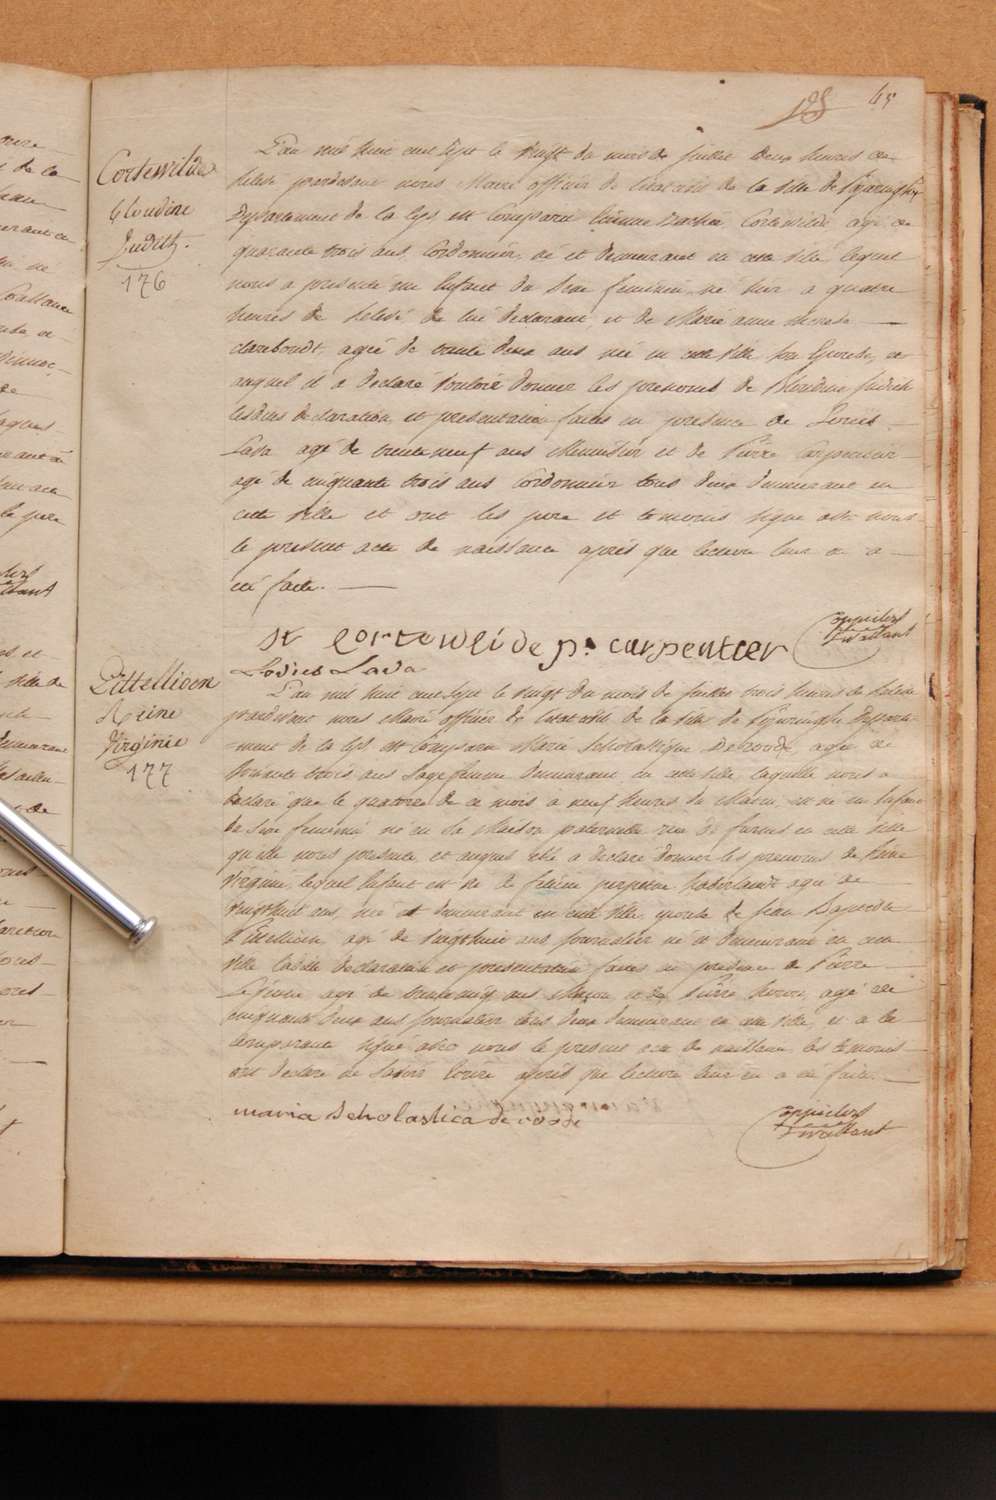 125 45
Cortewilde
Cloudine
Judith.
176
L'an mil huit cent sept le vingt du mois de juillet deux heures de
relevé pardevant nous Maire officier de l'etat civil de la ville de Poperinghe
Departement de la Lys est comparu Cortewilde agé de
quarante trois ans, Cordonnier, né et demeurant en cette ville lequel
nous a presenté un Enfant du Sexe feminin né hier a quatre
heures de relevé de lui declarant et de Marie anne
clareboudt, agée de trente deux ans née en cette ville son Epouse, et
auquel il a declaré vouloir donner les prenoms de Judith
lesdites declaration et presentation faites en presence de Louis
Lava agé de trente neuf ans Menuisier et de Pierre Carpentier
agé de cinquante trois ans Cordonnier tous deux demeurant en
cette ville et ont les pere et temoins signé avec nous
le present acte de naissance après que lecture leur en a
été faite.
st corteweide p. carpentier
Lovies Lava
Pittellioen
Reine
Virginie
177
L'an mil huit cent sept le vingt du mois de juillet trois heures de relevé
pardevant nous Maire officier de l'etat civil de la ville de Poperinghe Departe-
-ment de la Lys est comparu Marie Scholastique Deroode, agée de
trois ans Sage femme demeurant en cette ville, laquelle nous a
declaré que le quatorze de ce mois a neuf heures du Matin, est né un Enfant
de Sexe feminin né en la Maison paternelle rue de furnes en cette ville
qu'elle nous presente, et auquel elle a declaré donner les prenoms de Reine
Virginie, lequel Enfant est né de agée de
vingt huit ans, née et demeurant en cette ville, epouse de Jean Baptiste
Pittellioen agé de vingt huit ans journalier né et demeurant en cette
ville ladite declaration et presentation faites en presence de Pierre
agé de ans Macon et de Pierre agé de
cinquante deux ans journalier tous deux demeurant en cette ville, et a la
comparante signé avec nous le present acte de naissance, les temoins
ont declaré ne savoir ecrire après que lecture leur en a été faite.
maria Scholastica de roode